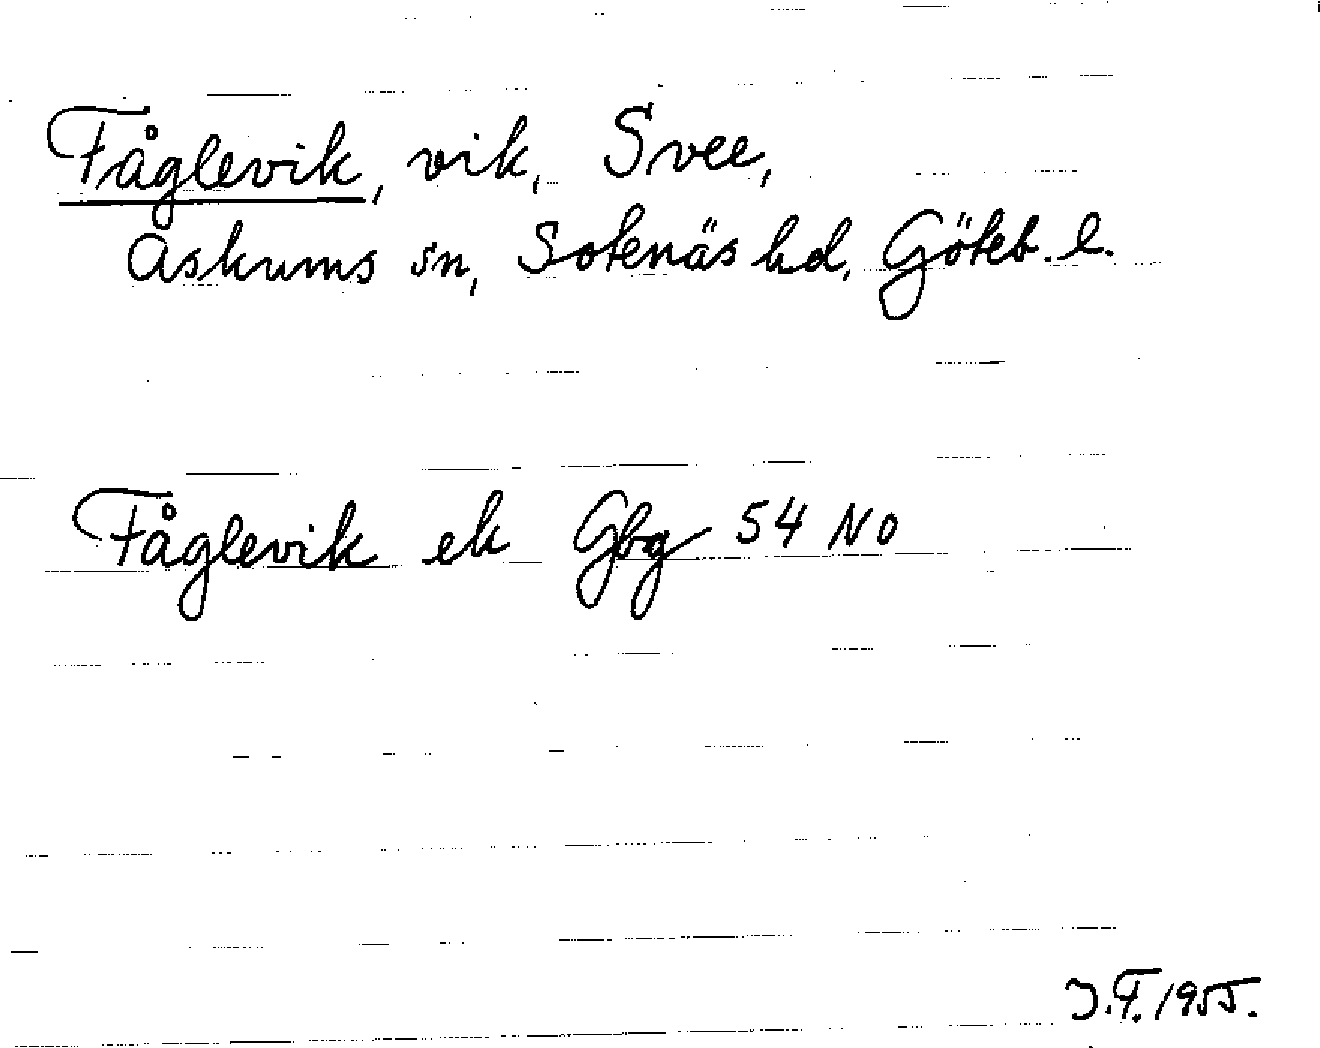 Fåglevik, vik, Svee,
Askums sn, Sotenäs hd, Göteb. l.
Fåglevik ek Gbg 54 NO
J.F. 1955.